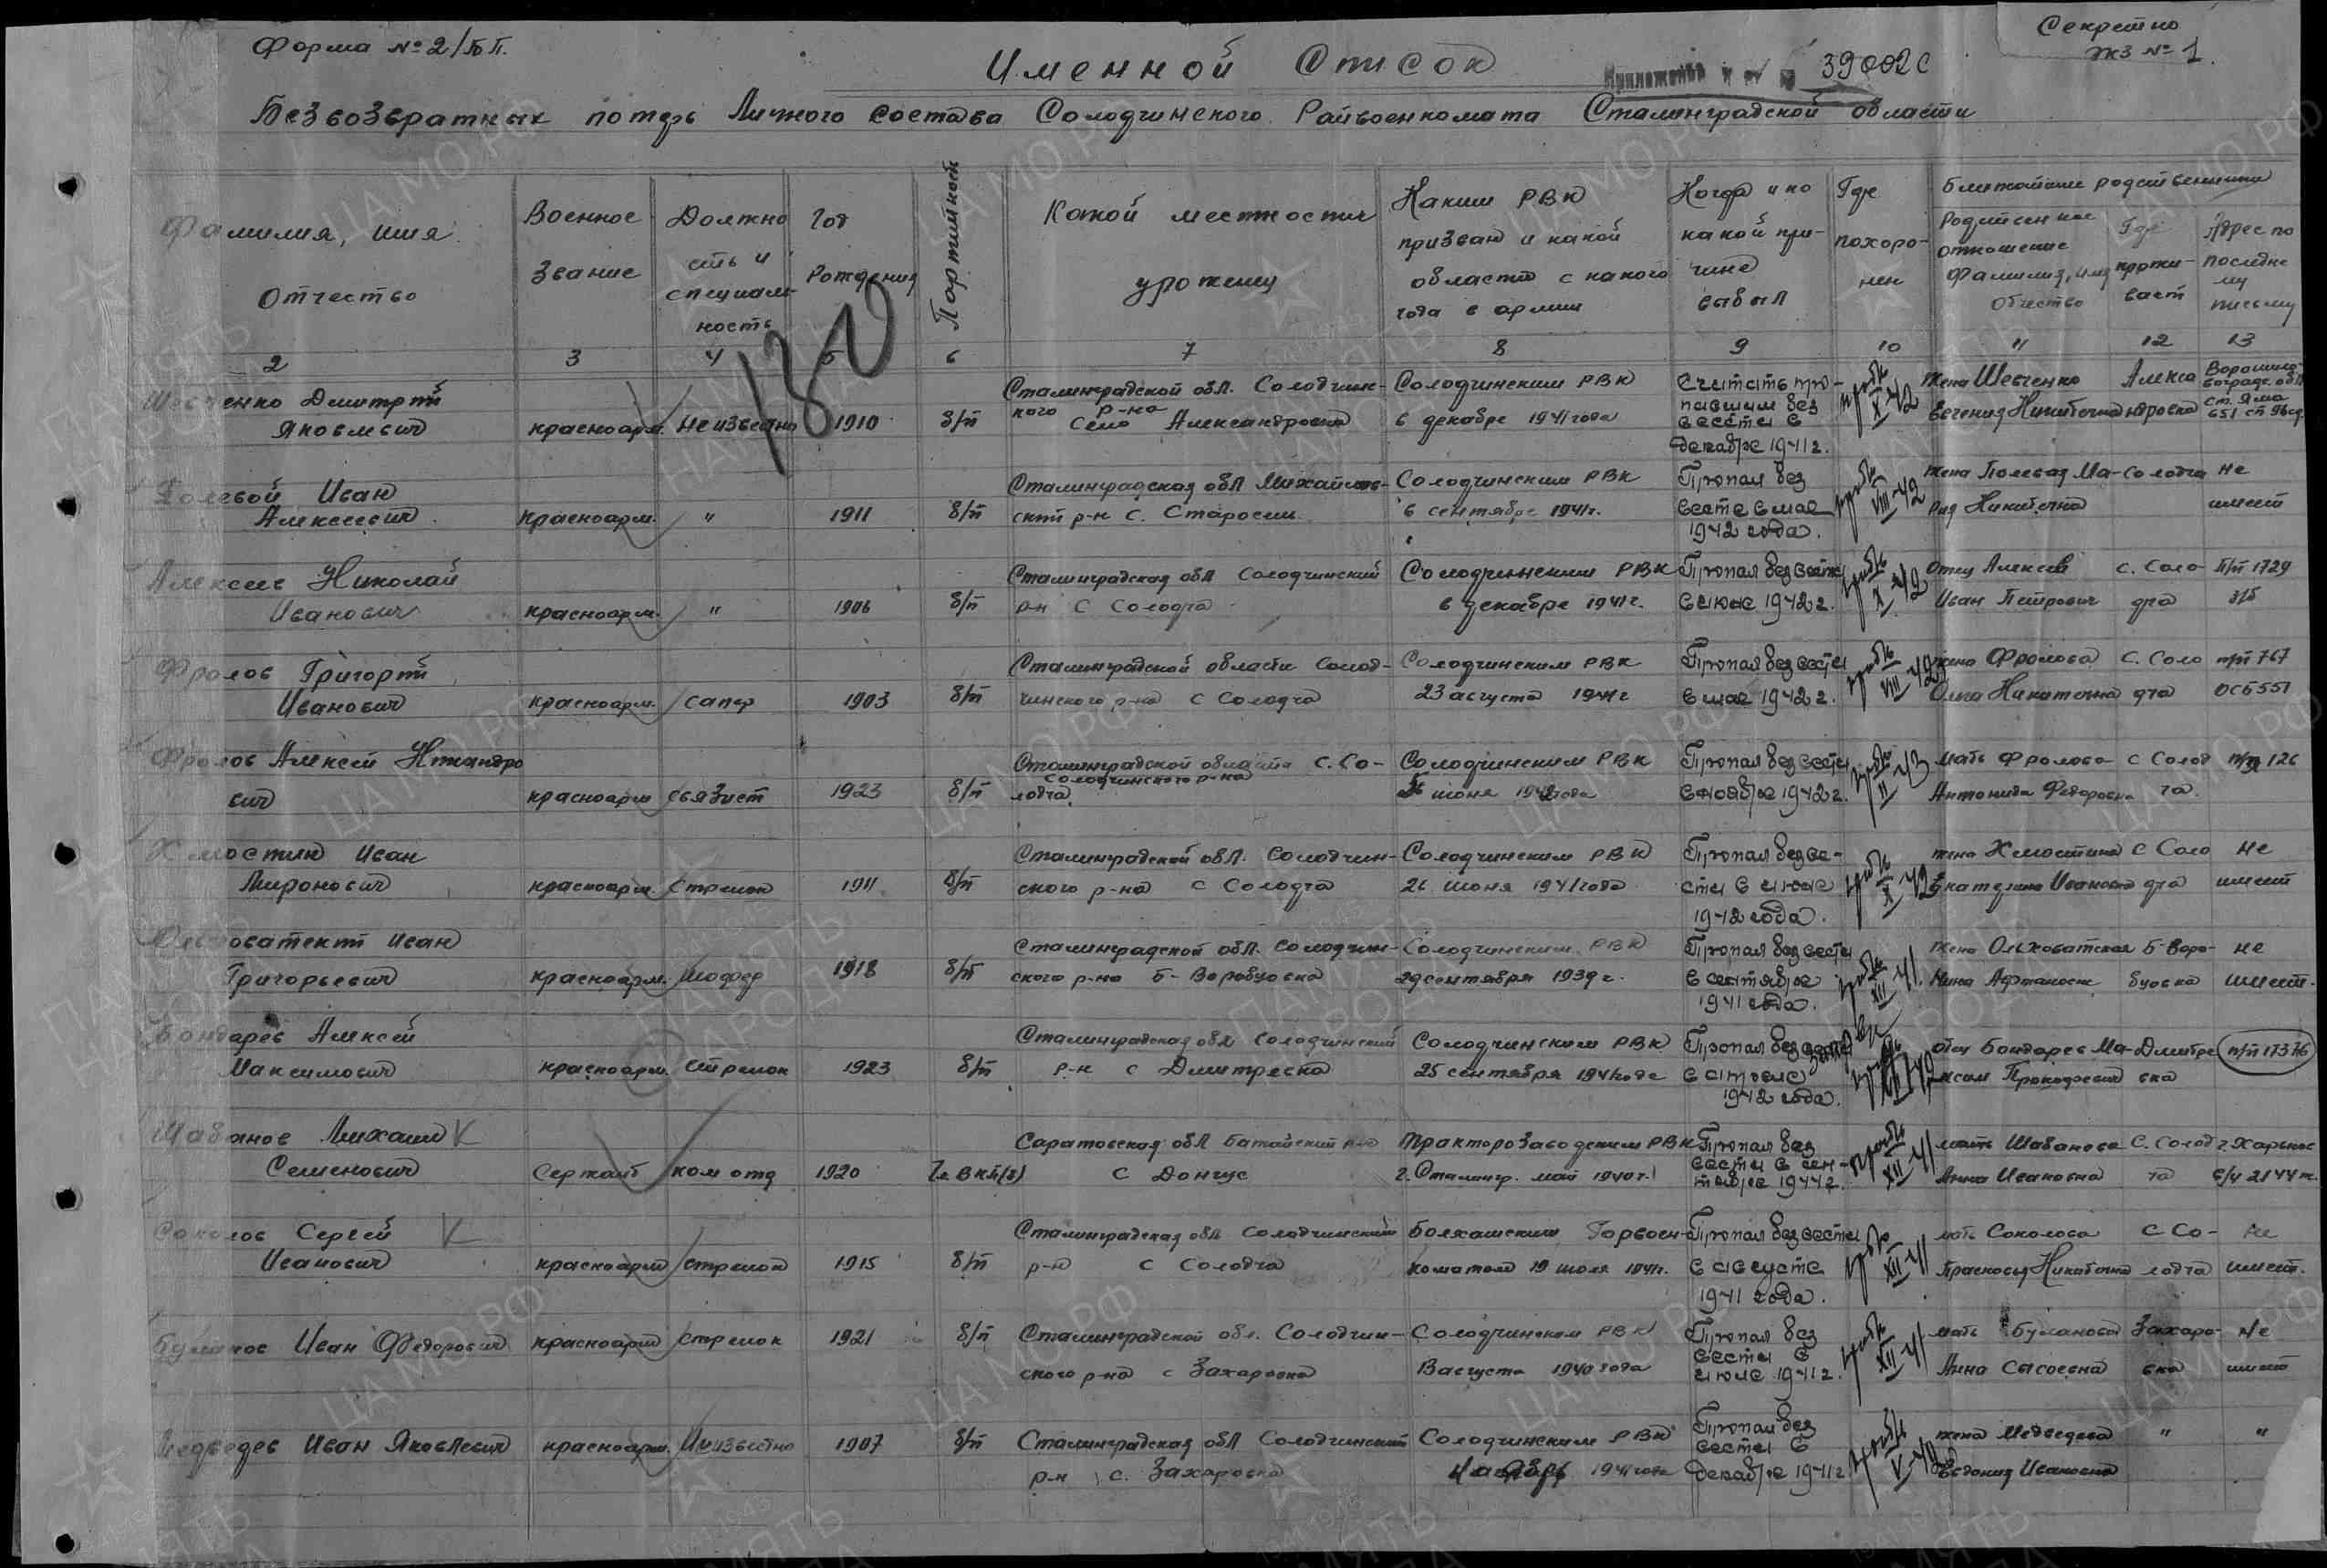 Форма № 2/БП.
Секретно
экз № 1.
Именной Список
Приложение к 39002с
Безвозвратных потерь Личного состава Солодчинского Райвоенкомата Сталинградской области
Фамилия, имя Отчество
Военное звание
Должность и специальность
Год Рождения
Партийность
Какой местности уроженец
Каким РВК призван и какой области с какого года в армии
Когда и по какой причине выбыл
Где похоронен
Ближайшие родственники
Родственное отношение Фамилия, имя Отчество
Где проживает
Адрес по последнему письму
2 3 4 5 6 7 8 9 10 11 12 13
180
Шевченко Дмитрий Сталинградской обл. Солодчин- Солодчинским РВК Считать про- Жена Шевченко Алекса
кого р-на павшим без
Яковлевич красноарм. Неизвестно 1910 б/п Село Александровка в декабре 1941 года вести в X-42 Евгения Никитична ндровка
декабре 1941 г.
Полевой Иван Сталинградская обл Михайлов- Солодчинским РВК Пропал без жена Полевая Ма- Солодча не
Алексеевич красноарм. " 1911 б/п ский р-н с. Староселье в сентябре 1941г. вести в мае VIII-42 рия Никитична имеет
1942 года.
Алексеев Николай Сталинградская обл Солодчинский Солодчинским РВК Пропал без вести Отец Алексеев с. Соло- П/п 1729
Иванович красноарм. " 1906 б/п р-н с Солодча в декабре 1941г. в июне 1942 г. X-42 Иван Петрович дча
Фролов Григорий Сталинградской области Солод- Солодчинским РВК Пропал без вести жена Фролова с. Соло п/п 767
Иванович красноарм. сапер 1903 б/п чинского р-на с Солодча 23 августа 1941г в мае 1942 г. VIII-42 Ольга Никитична дча ОСБ 551
Фролов Алексей Никандро Сталинградской области с. Со- Солодчинским РВК Пропал без вести мать Фролова с Солод п/я 126
Солодчинского р-на
вич красноарм связист 1923 б/п лодча июня 1942 года в ноябре 1942 г. II-43 Антонида Федоровна ча.
Хмостин Иван Сталинградской обл. Солодчин- Солодчинским РВК Пропал без ве- жена Хмостина с Соло не
Миронович красноарм. Стрелок 1911 б/п ского р-на с Солодча 26 июня 1941 года сти в июне X-42 Екатерина Ивановна дча имеет
1942 года.
Ольховатский Иван Сталинградской обл. Солодчин- Солодчинским РВК Пропал без вести жена Ольховатская Б-Воро- не
Григорьевич красноарм. шофер 1918 б/п ского р-на Б-Воробцовка 29 сентября 1939 г. в сентябре XII-41. Нина бцовка имеет.
1941 года.
Бондарев Алексей Сталинградская обл Солодчинский Солодчинским РВК Пропал без вести отец Бондарев Ма- Дмитре п/п 17376
Максимович красноарм. стрелок 1923 б/п р-н с Дмитревка 25 сентября 1941 года в апреле ксим Прокофьевич вка
1942 года.
Шабанов Михаил Саратовская обл р-н Тракторозаводским РВК Пропал без мать Шабанова С. Солод г. Харьков
Семенович Сержант ком отд 1920 Чл ВКП(б) с Донгус г. Сталингр. май 1940 г. вести в сен- XII-41 Анна Ивановна ча
тябре 1941 г.
Соколов Сергей Сталинградская обл Солодчинский Болхашским Горвоен- Пропал без вести мать Соколова с Со- не
Иванович красноарм стрелок 1915 б/п р-н с Солодча коматом 19 июля 1941г. в августе XII-41 Прасковья Никитична лодча имеет.
1941 года.
Буланов Иван Федорович красноарм стрелок 1921 б/п Сталинградской обл. Солодчин- Солодчинским РВК Пропал без мать Буланова Захаро- не
вести в
ского р-на с Захаровка августа 1940 года июле 1941 г. XII-41 Анна Сысоевна вка имеет
Медведев Иван Яковлевич красноарм. Неизвестно 1907 б/п Сталинградская обл Солодчинский Солодчинским РВК Пропал без жена Медведева " "
вести в
р-н с. Захаровка 1941 года декабре 1941 г V-42 Евдокия Ивановна
ЦАМО.РФ
ПАМЯТЬ НАРОДА
1941-1945